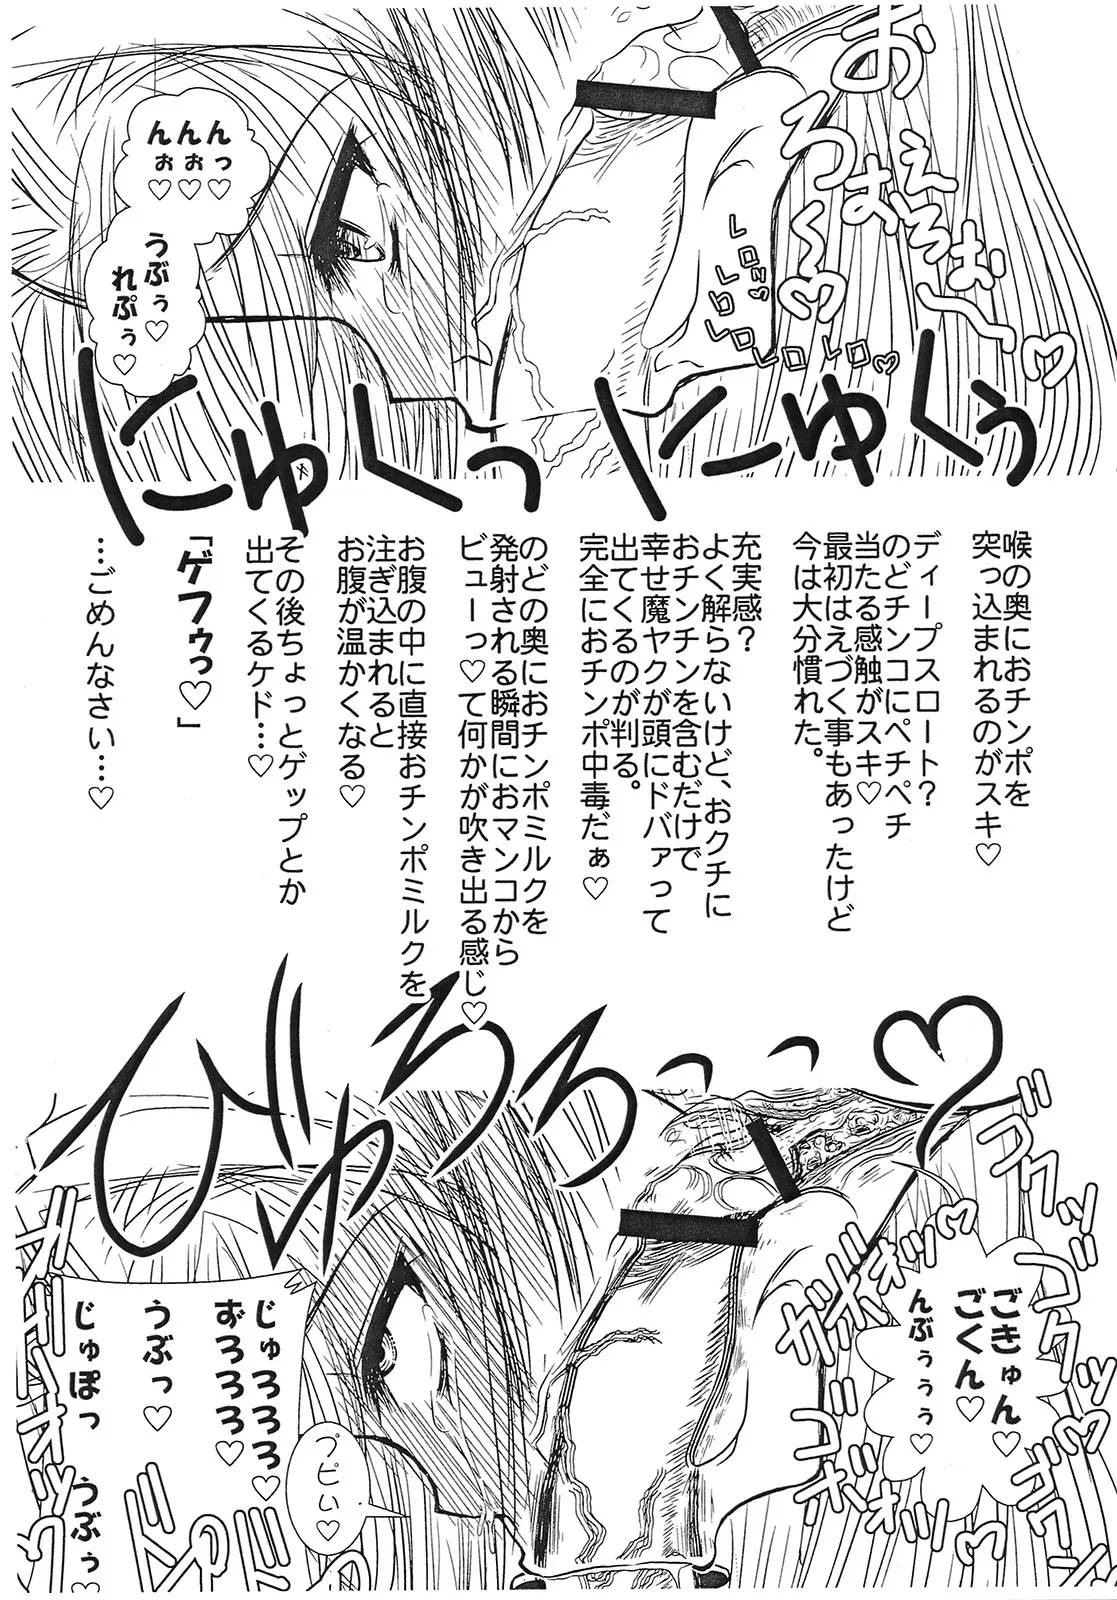 レロレロレロレロ♡
にゅくぅ
にゅくっ
んっ♡
んぉ♡
んぉ♡
うぶぅ♡
れぷぅ♡
喉の奥におチンポを
突っ込まれるのがスキ♡
ディープスロート?
のどチンコにペチペチ
当たる感触がスキ♡
最初はえづく事もあったけど
今は大分慣れた。
充実感?
よく解らないけど、おクチに
おチンチンを含むだけで
幸せ魔ヤクが頭にドバァって
出てくるのが判る。
完全におチンポ中毒だぁ♡
のどの奥におチンポミルクを
発射される瞬間におマンコから
ビューっ♡て何かが吹き出る感じ♡
お腹の中に直接おチンポミルクを
注ぎ込まれると
お腹が温かくなる♡
その後ちょっとゲップとか
出てくるケド…♡
「ゲフゥっ♡」
…ごめんなさい…♡
びゅろろっっ♡
ゴクッ
ゴクッ
ごきゅん♡
ごくん♡
んぶぅぅぅ♡
プピぃ♡
じゅろろろ♡
おろろろろ♡
うぶっ♡
じゅぽっ
うぶぅ♡